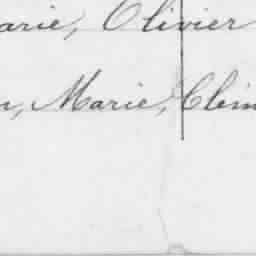 arie, Olivier
n, Marie, Clém